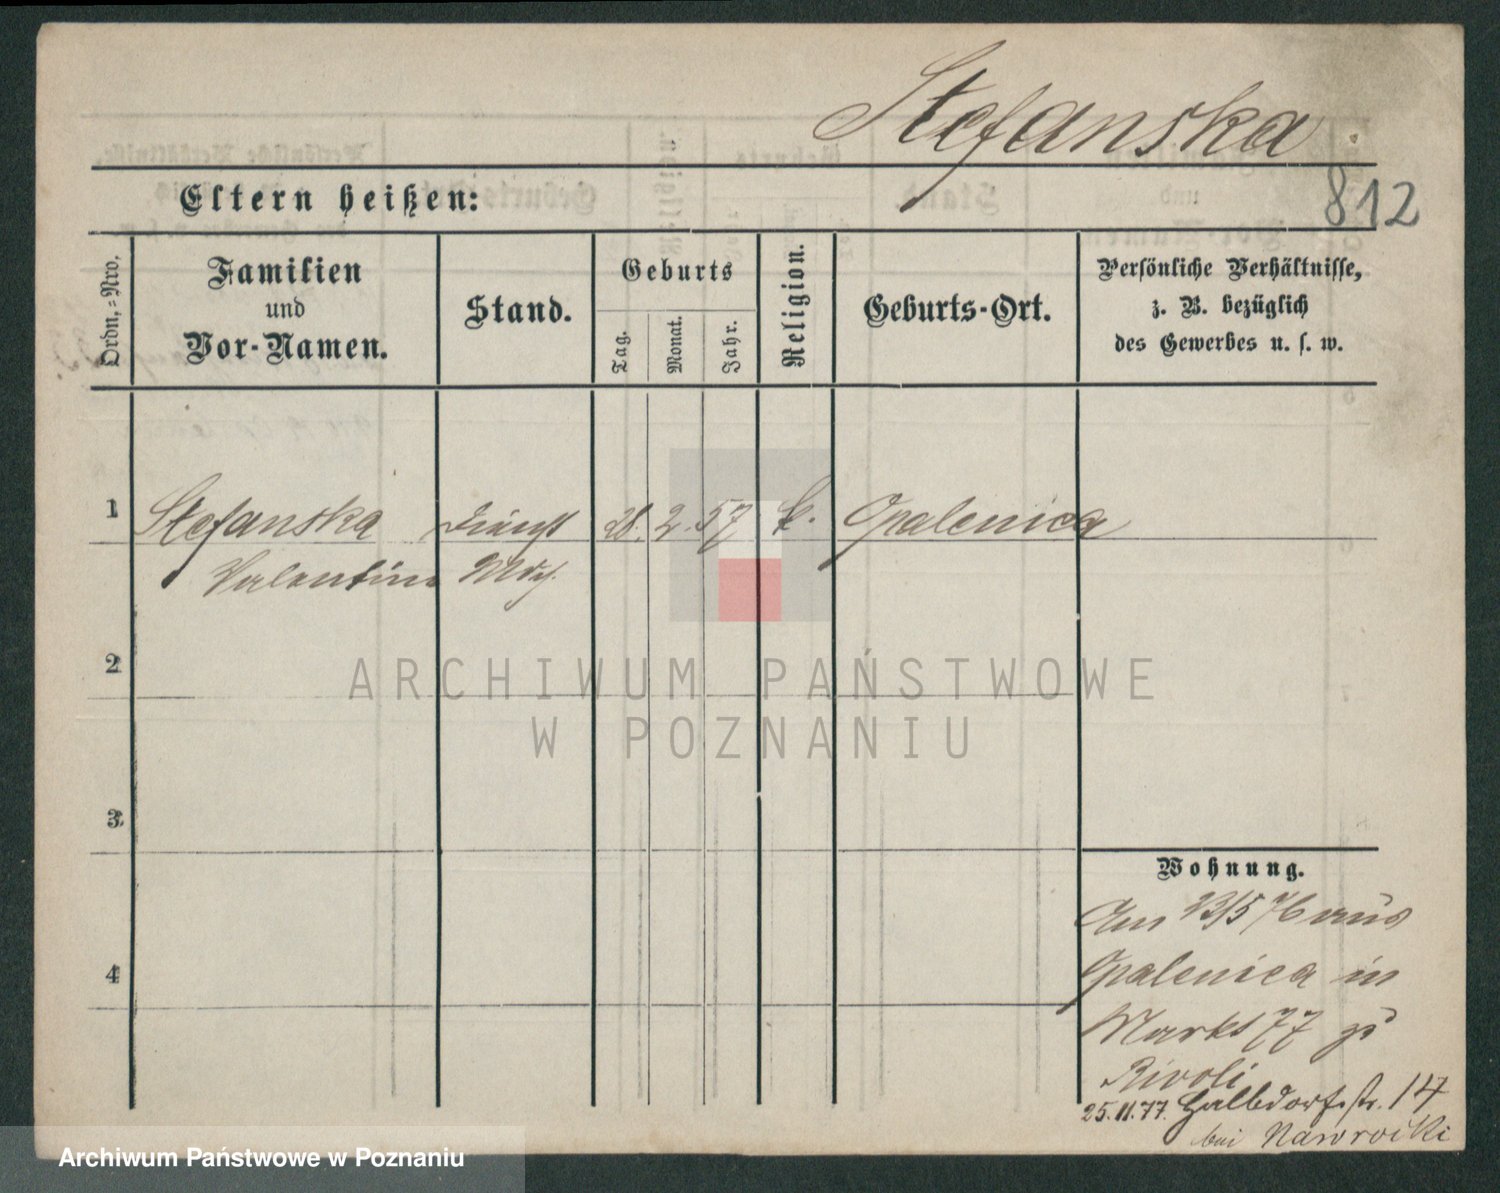 Stefanska
812
Eltern heißen:
Ordn.=Nro.
Familien
und
Vor-Namen.
Stand.
Geburts
Tag.
Monat.
Jahr.
Religion.
Geburts-Ort.
Persönliche Verhältnisse,
z. B. bezüglich
des Gewerbes u. s. w.
1 Stefanska Dienst 28. 2. 57 k. Opalenica
Valentine Mdch.
2
3
4
Wohnung.
Am 23/5 76 aus
Opalenica in
Markt 77 zu
Rivoli
25.11.77. Halbdorfstr. 14
bei Nawrocki
ARCHIWUM PAŃSTWOWE
W POZNANIU
Archiwum Państwowe w Poznaniu